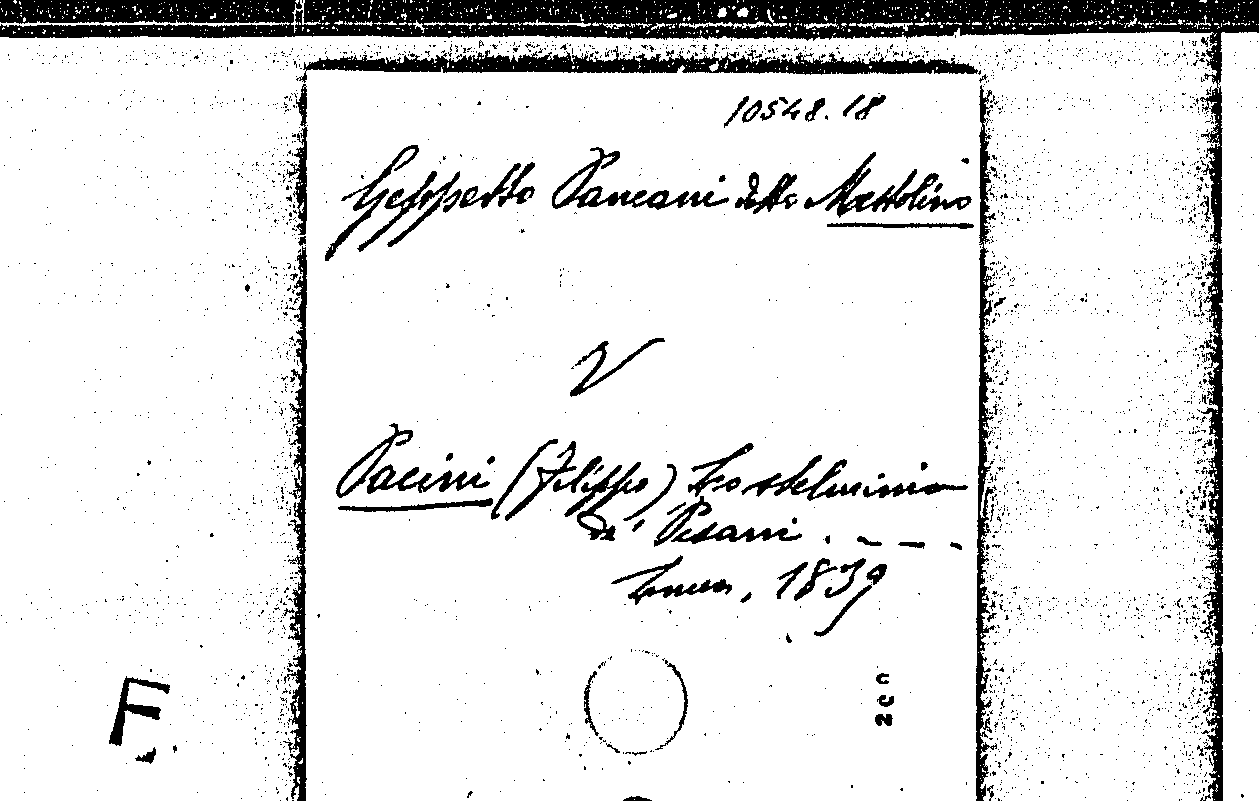 10548.18
Geppetto Pancani detto Mattolino
V
Pacini (Filippo)
de' Pisani . - - -
Lucca, 1839
F